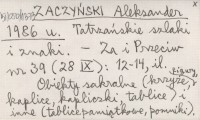 ZACZYŃSKI Aleksander
1986 u. Tatrzańskie szlaki
i znaki. - Za i Przeciw
nr 39 (28 IX): 12-14, il.
Obiekty sakralne (krzyże, figury,
kaplice, kapliczki, tablice)
inne (tablice pamiątkowe, pomniki).